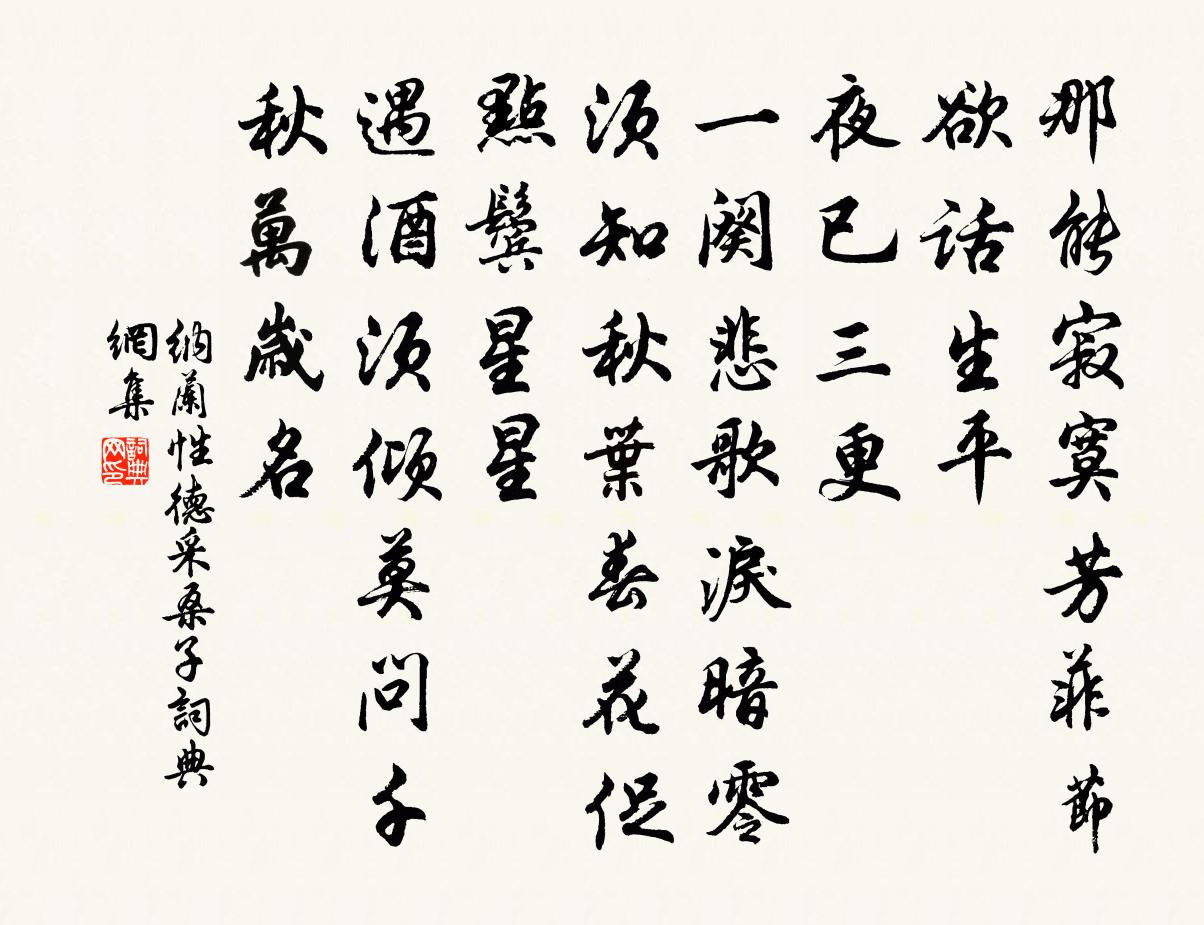 那能寂寞芳菲節
欲話生平
夜已三更
一闋悲歌淚暗零
須知秋葉春花促
點鬢星星
遇酒須傾莫問千
秋萬歲名
納蘭性德采桑子詞典
網集
詞典網印